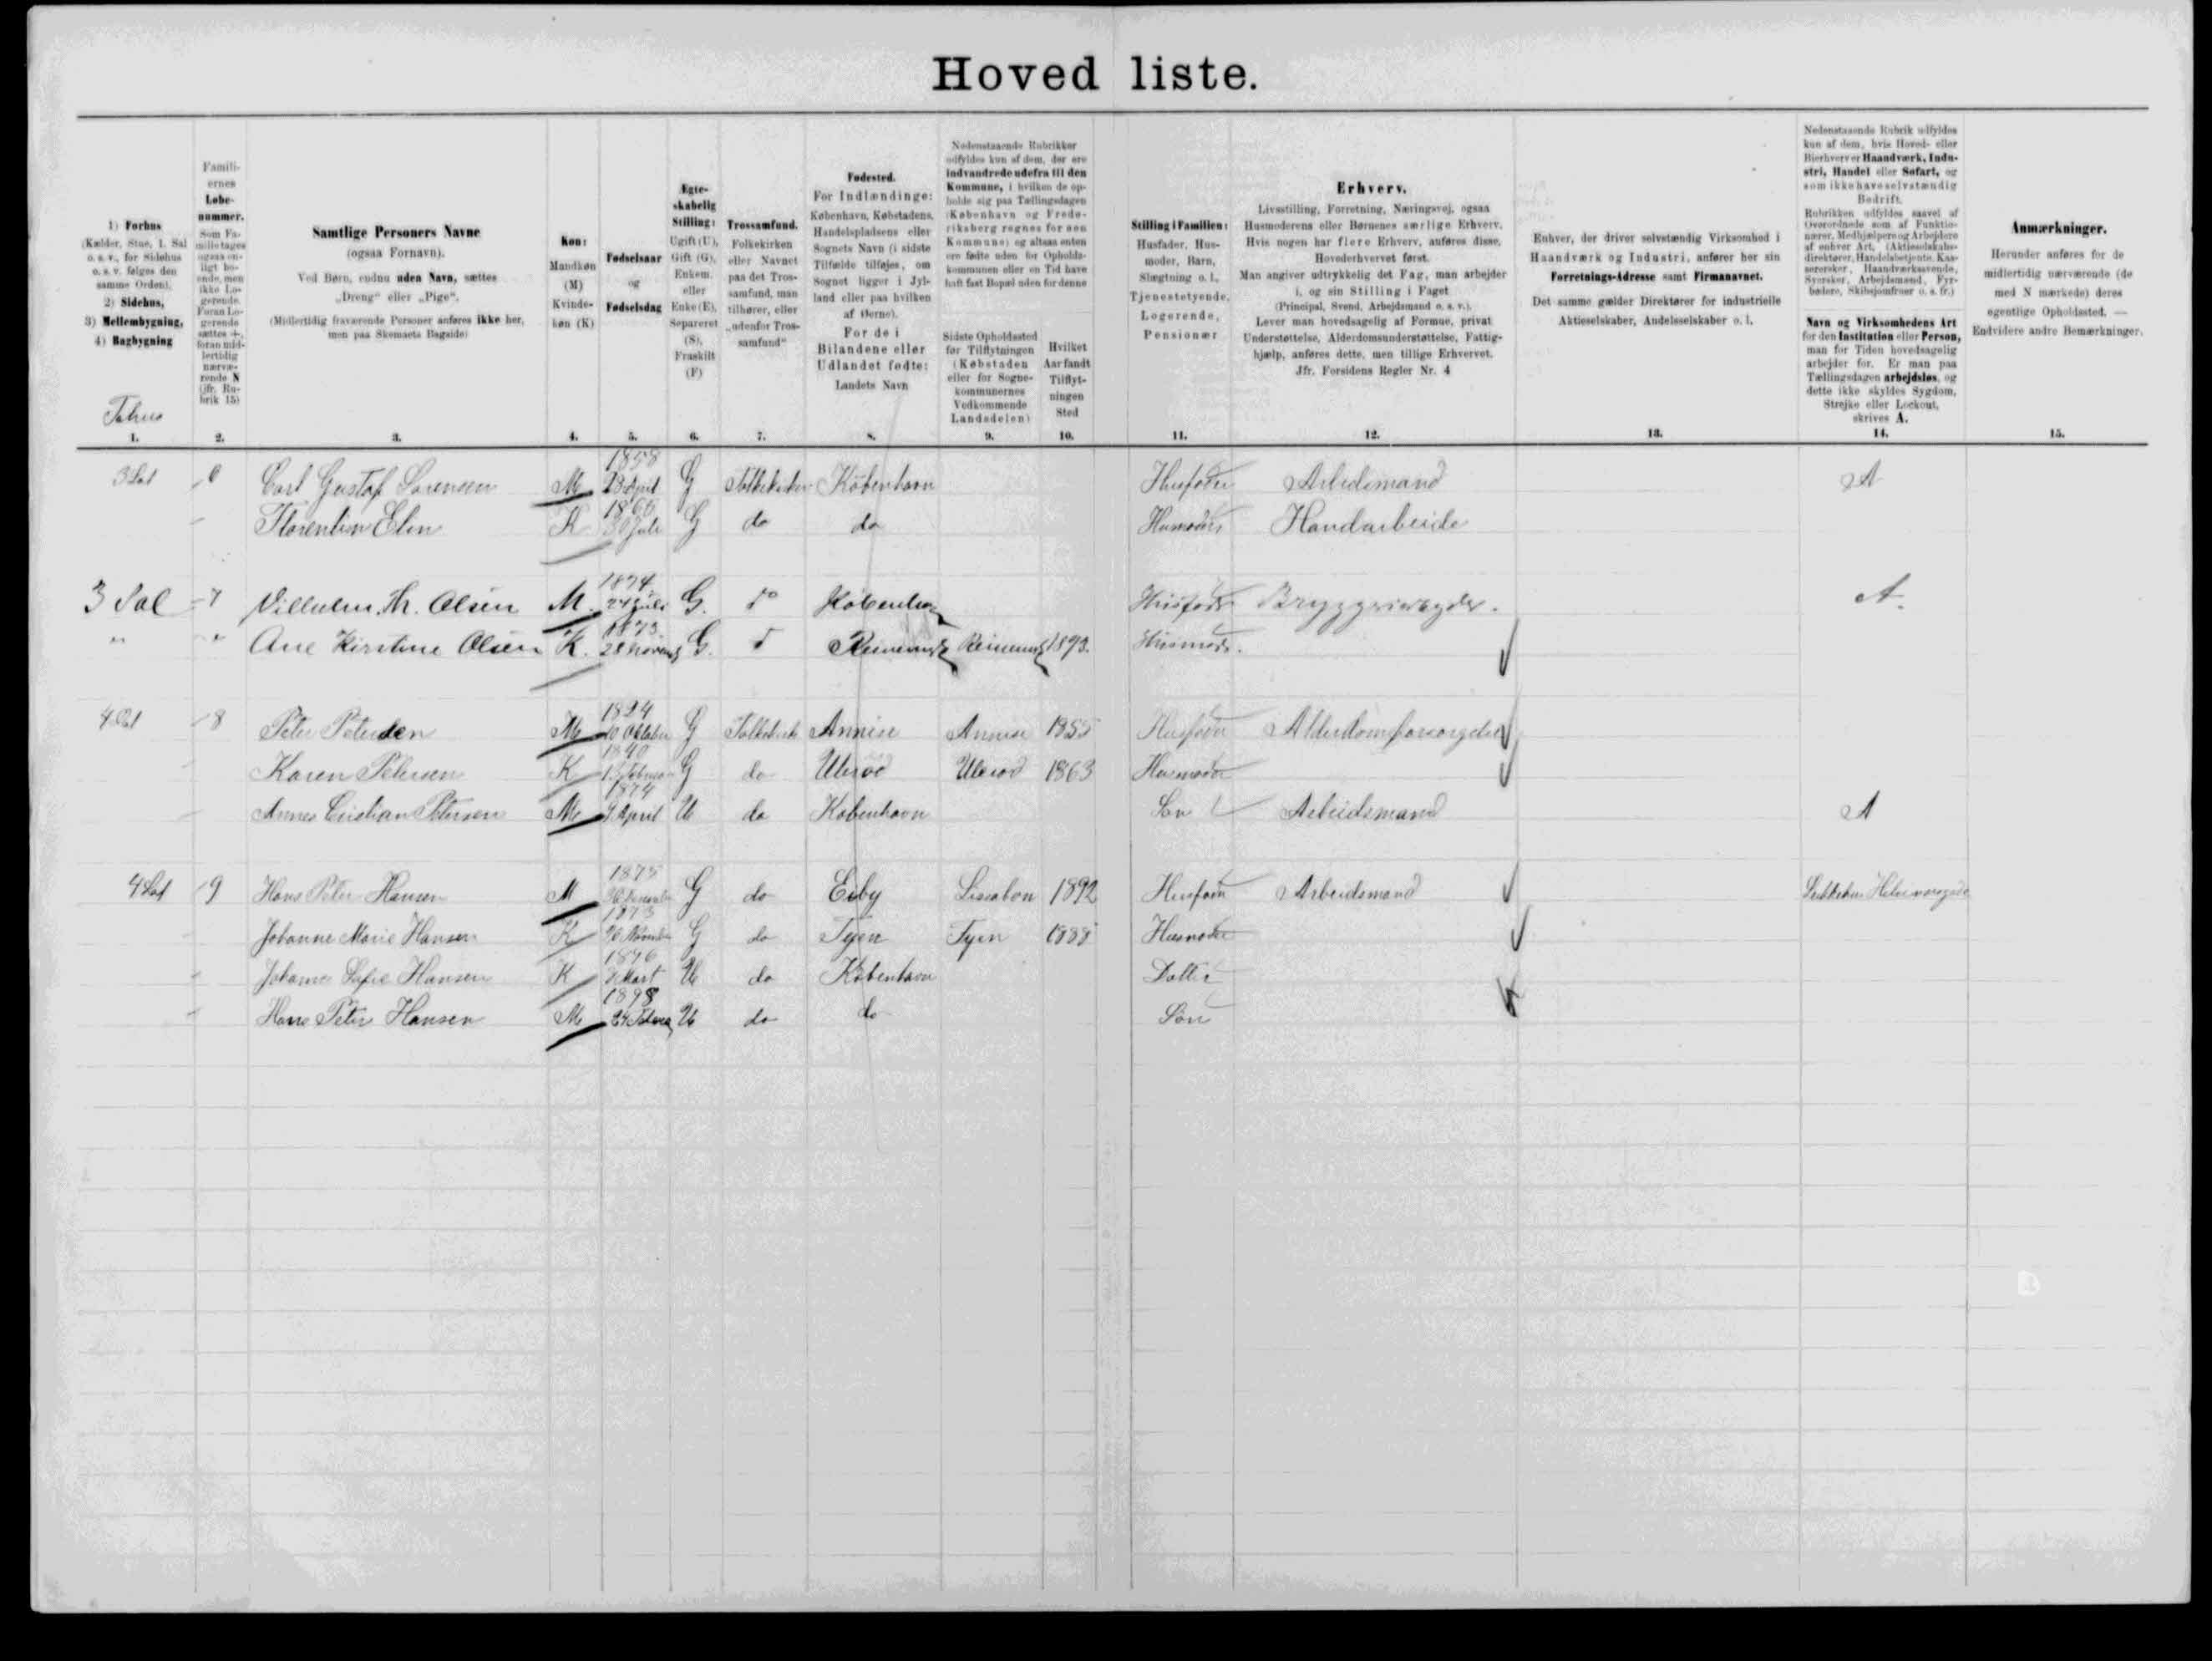 Hoved liste.
1) Forhus
(Kælder, Stue, 1. Sal
o. s. v., for Sidehus
o. s. v. følges den
samme Orden).
2) Sidehus,
3) Mellembygning,
4) Bagbygning
1.
Famili-
ernes
Løbe-
nummer.
Som Fa-
milie tages
ogsaa en-
ligt bo-
ende, men
ikke Lo-
gerende.
Foran Lo-
gerende
sættes +,
foran mid-
lertidig
nærvæ-
rende N
(jfr. Ru-
brik 15)
2.
Samtlige Personers Navne
(ogsaa Fornavn).
Ved Børn, endnu uden Navn, sættes
„Dreng" eller „Pige".
(Midlertidig fraværende Personer anføres ikke her,
men paa Skemaets Bagside)
3.
Køn:
Mandkøn
(M)
Kvinde-
køn (K)
4.
Fødselsaar
og
Fødselsdag
5.
Ægte-
skabelig
Stilling:
Ugift (U),
Gift (G),
Enkem.
eller
Enke (E),
Separeret
(S),
Fraskilt
(F)
6.
Trossamfund.
Folkekirken
eller Navnet
paa det Tros-
samfund, man
tilhører, eller
„udenfor Tros-
samfund"
7.
Fødested.
For Indlændinge:
København, Købstadens,
Handelspladsens eller
Sognets Navn (i sidste
Tilfælde tilføjes, om
Sognet ligger i Jyl-
land eller paa hvilken
af Øerne).
For de i
Bilandene eller
Udlandet fødte:
Landets Navn
8.
Nedenstaaende Rubrikker
udfyldes kun af dem, der ere
indvandrede udefra til den
Kommune, i hvilken de op-
holde sig paa Tællingsdagen
(København og Frede-
riksberg regnes for een
Kommune) og altsaa enten
ere fødte uden for Opholds-
kommunen eller en Tid have
haft fast Bopæl uden for denne
Sidste Opholdssted
før Tilflytningen
(Købstaden
eller for Sogne-
kommunernes
Vedkommende
Landsdelen)
9.
Hvilket
Aar fandt
Tilflyt-
ningen
Sted
10.
Stilling i Familien:
Husfader, Hus-
moder, Barn,
Slægtning o. l.,
Tjenestetyende,
Logerende,
Pensionær
11.
Erhverv.
Livsstilling, Forretning, Næringsvej, ogsaa
Husmoderens eller Børnenes særlige Erhverv.
Hvis nogen har flere Erhverv, anføres disse,
Hovederhvervet først.
Man angiver udtrykkelig det Fag, man arbejder
i, og sin Stilling i Faget
(Principal, Svend, Arbejdsmand o. s. v.).
Lever man hovedsagelig af Formue, privat
Understøttelse, Alderdomsunderstøttelse, Fattig-
hjælp, anføres dette, men tillige Erhvervet.
Jfr. Forsidens Regler Nr. 4
12.
Enhver, der driver selvstændig Virksomhed i
Haandværk og Industri, anfører her sin
Forretnings-Adresse samt Firmanavnet.
Det samme gælder Direktører for industrielle
Aktieselskaber, Andelsselskaber o. l.
13.
Nedenstaaende Rubrik udfyldes
kun af dem, hvis Hoved- eller
Bierhverv er Haandværk, Indu-
stri, Handel eller Søfart, og
som ikke have selvstændig
Bedrift.
Rubrikken udfyldes saavel af
Overordnede som af Funktio-
nærer, Medhjælpere og Arbejdere
af enhver Art, (Aktieselskabs-
direktører, Handelsbetjente, Kas-
sererske, Haandværkssvende,
Syersker, Arbejdsmænd, Fyr-
bødere, Skibsjomfruer o. s. fr.)
Navn og Virksomhedens Art
for den Institution eller Person,
man for Tiden hovedsagelig
arbejder for. Er man paa
Tællingsdagen arbejdsløs, og
dette ikke skyldes Sygdom,
Strejke eller Lockout,
skrives A.
14.
Anmærkninger.
Herunder anføres for de
midlertidig nærværende (de
med N mærkede) deres
egentlige Opholdssted. —
Endvidere andre Bemærkninger.
15.
3 Sal 6 Carl Gustaf Sørensen M 1858 23 April G Folkekirken København Husfader Arbeidsmand A
Florentine Elin K 1866 30 Juli G do do Husmoder Handarbeide
3 Sal 7 Vilhelm Th. Olsen M. 1874 24 Juli G. do København Husfader A.
" " Ane Kirstine Olsen K. 1873. 28 Novemb G. 1893. Husmod.
4 Sal 8 Peter Petersen M 1824 10 Oktober G Folkekirk Annise Annise 1855 Husfader Alderdomsforsørgelse
Karen Petersen K 1840 G do Ulerød Ulerød 1863 Husmoder
Cristian Petersen M 1874 April U do København Søn Arbeidsmand A
4 Sal 9 Hans Peter Hansen M 1875 G do Eiby Lissabon 1892 Husfader Arbeidsmand
Johanne Marie Hansen K 1873 November G do Fyen Fyen 1888 Husmoder
Johanne Sofie Hansen K 1896 Mart U do København Datter
Hans Peter Hansen M 1898 24 Februar U do do Søn